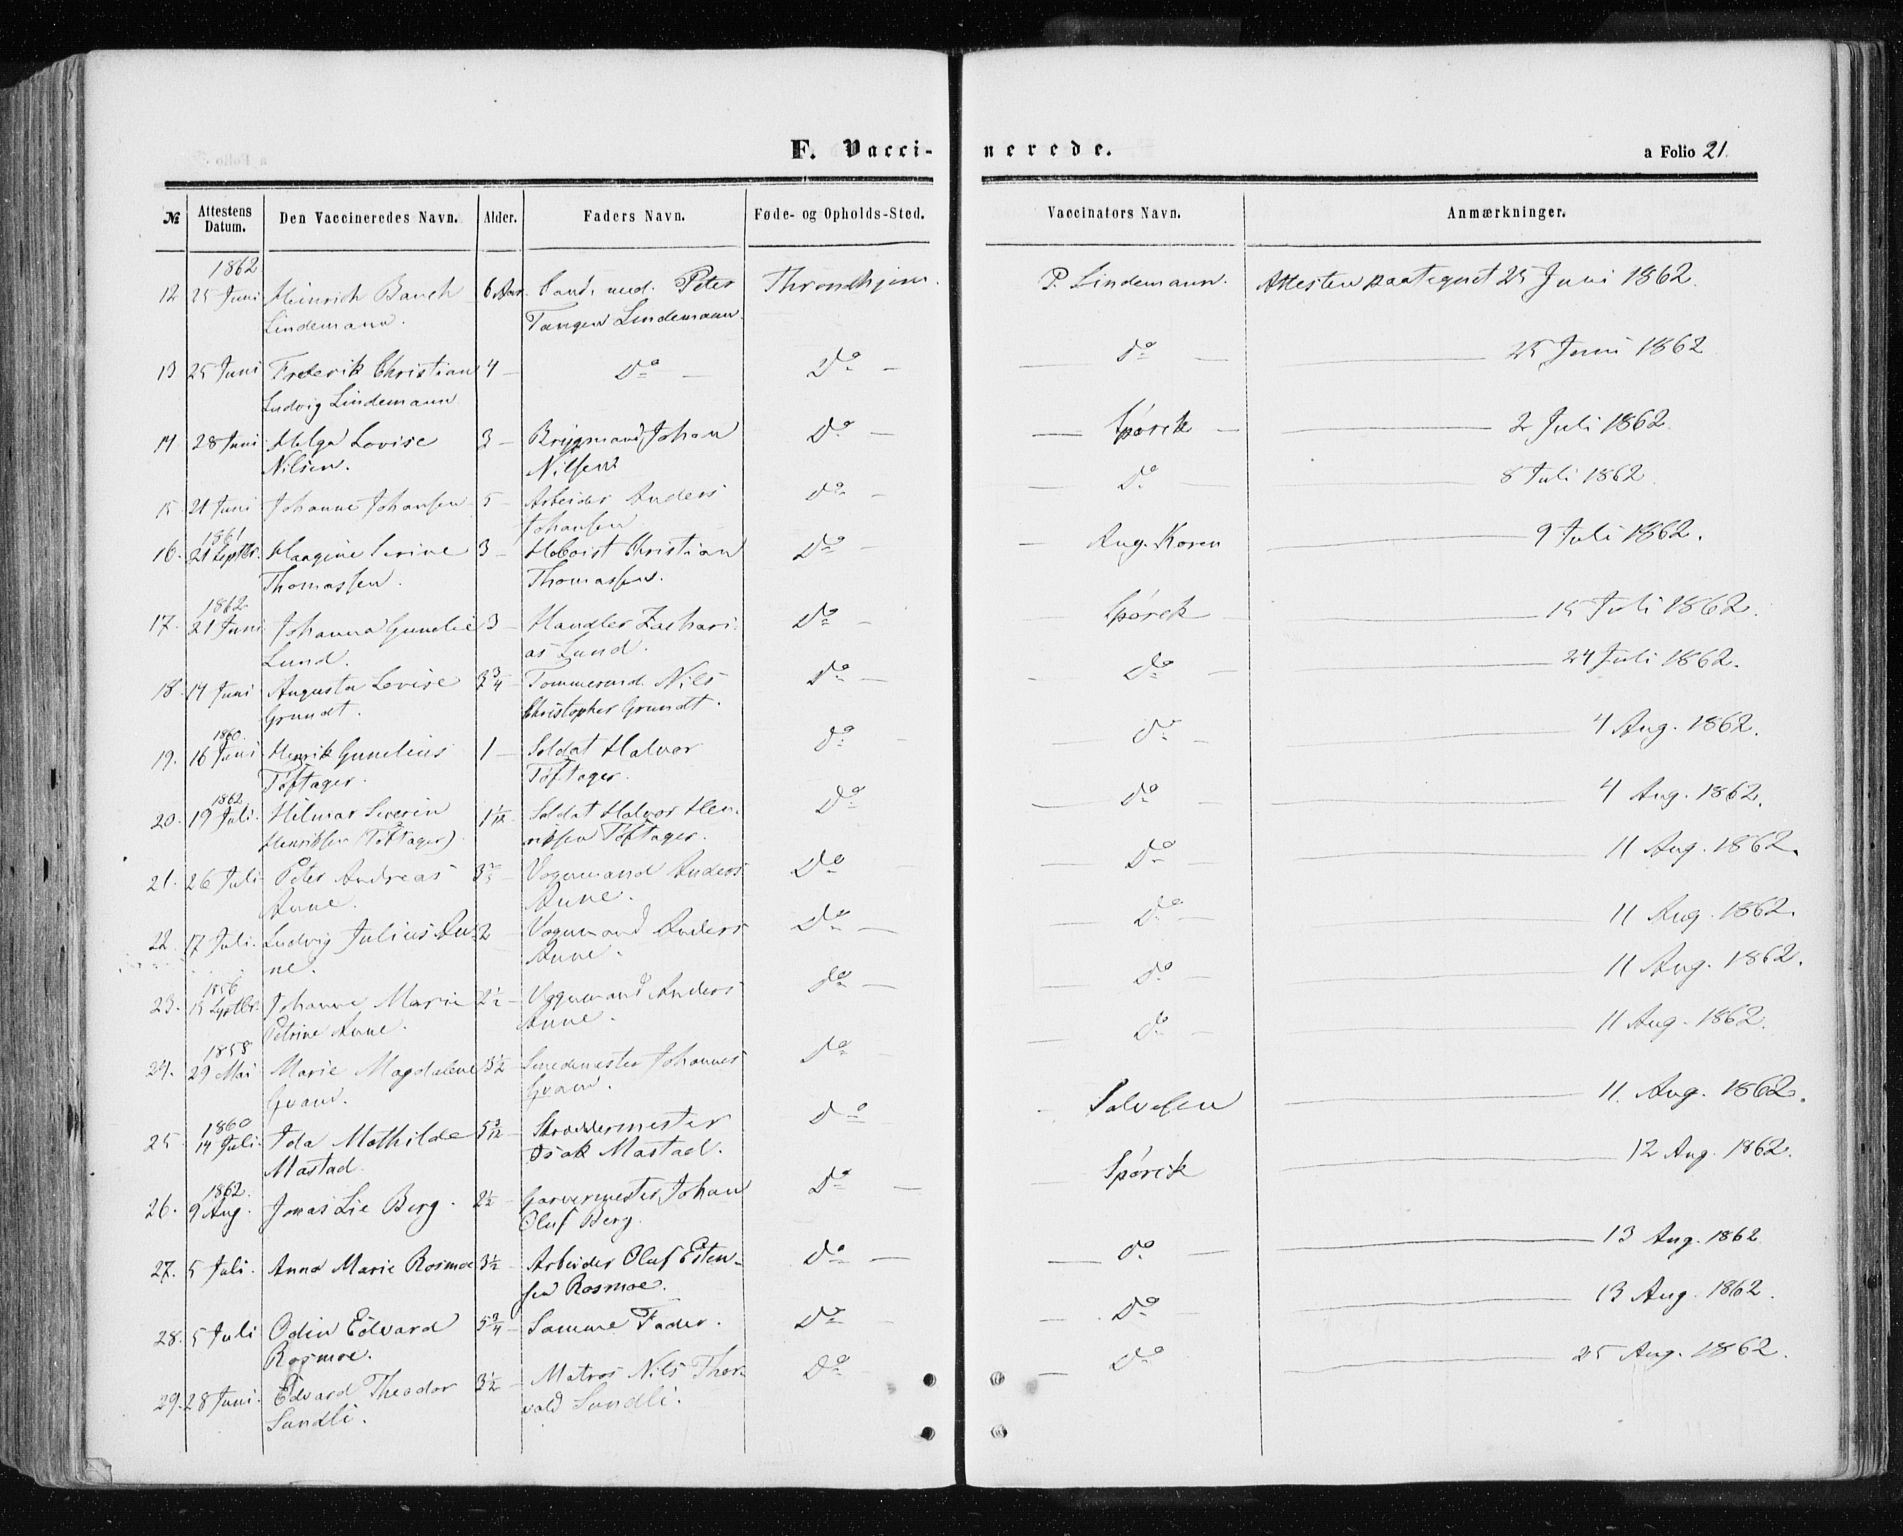 F. Vaccinerede. a Folio 21.
№ Attestens Datum. Den Vaccineredes Navn. Alder. Faders Navn. Føde- og Opholds-Sted. Vaccinators Navn. Anmærkninger.
1862
12 25 Juni Heinrich Bauch 6 Aar. Cand. med. Peter Throndhjem. P. Lindemann. Attesten paategnet 25 Juni 1862.
Lindemann. Tangen Lindemann.
13 25 Juni Frederik Christian 4 — Do — Do — — Do — 25 Juni 1862
Ludvig Lindemann
14 28 Juni Helga Lovise 3 — Brygmand Johan Do — — Spørck — 2 Juli 1862.
Nilsen. Nilsen
15 21 Juni Johanne Johansen 5 — Arbeider Anders Do — — Do — 8 Juli 1862.
Johansen
1861
16. 21 Septbr. Haagine Serine 3 — Hoboist Christian Do — — Aug. Koren 9 Juli 1862.
Thomassen. Thomassen.
1862
17. 21 Juni Johanna Gunelie 3 — Handler Zachari- Do — Spørck — 15 Juli 1862.
Lund. as Lund.
18 14 Juni Augusta Lovise 3/4 — Tømmermd. Nils Do — — Do — 24 Juli 1862.
Grundt. Christopher Grundt.
1860.
19. 16 Juni Henrik Gunelius 1 — Soldat Halvor Do — — Do — 4 Aug. 1862.
Tøftager. Tøftager.
1862
20. 19 Juli. Hilmar Severin 1 1/12 Soldat Halvor Hen- Do — Do — 4 Aug. 1862.
Henriksen (Tøftager). riksen Tøftager.
21. 26 Juli Peter Andreas 3 — Vognmand Anders Do — — Do — 11 Aug. 1862.
Aune. Aune.
22. 17 Juli. Ludvig Julius Au- 2 Vognmand Anders Do — — Do — 11 Aug. 1862.
ne. Aune.
1856
23. 15 Septbr. Johanne Marie 2 1/2 — Vognmand Anders Do — — Do — 11 Aug. 1862.
Petrine Aune. Aune.
1858
24. 29 Mai Marie Magdalene 3 1/2 — Smedmester Johannes Do — Do — 11 Aug. 1862.
Graun. Graun.
1860
25 14 Juli. Ida Mathilde 5 — Skreddermester Do — — Salvesen 11. Aug. 1862.
Mastad. Isak Mastad.
1862.
26. 9 Aug. Jonas Lie Berg. 2 1/2 — Garvermester Johan Do — — Spørck 12 Aug. 1862.
Oluf Berg.
27. 5 Juli. Anna Marie Rosmoe 3 1/2 — Arbeider Oluf Esten- Do — — Do — 13 Aug. 1862
sen Rosmoe.
28. 5 Juli Odin Edvard 5 3/4 — Samme Fader. Do — — Do 13 Aug. 1862.
Rosmoe.
29. 28 Juni. Edvard Theodor 3 1/2 — Matros Nils Thor- Do — — Do 25 Aug. 1862.
Sundli. vald Sundli.